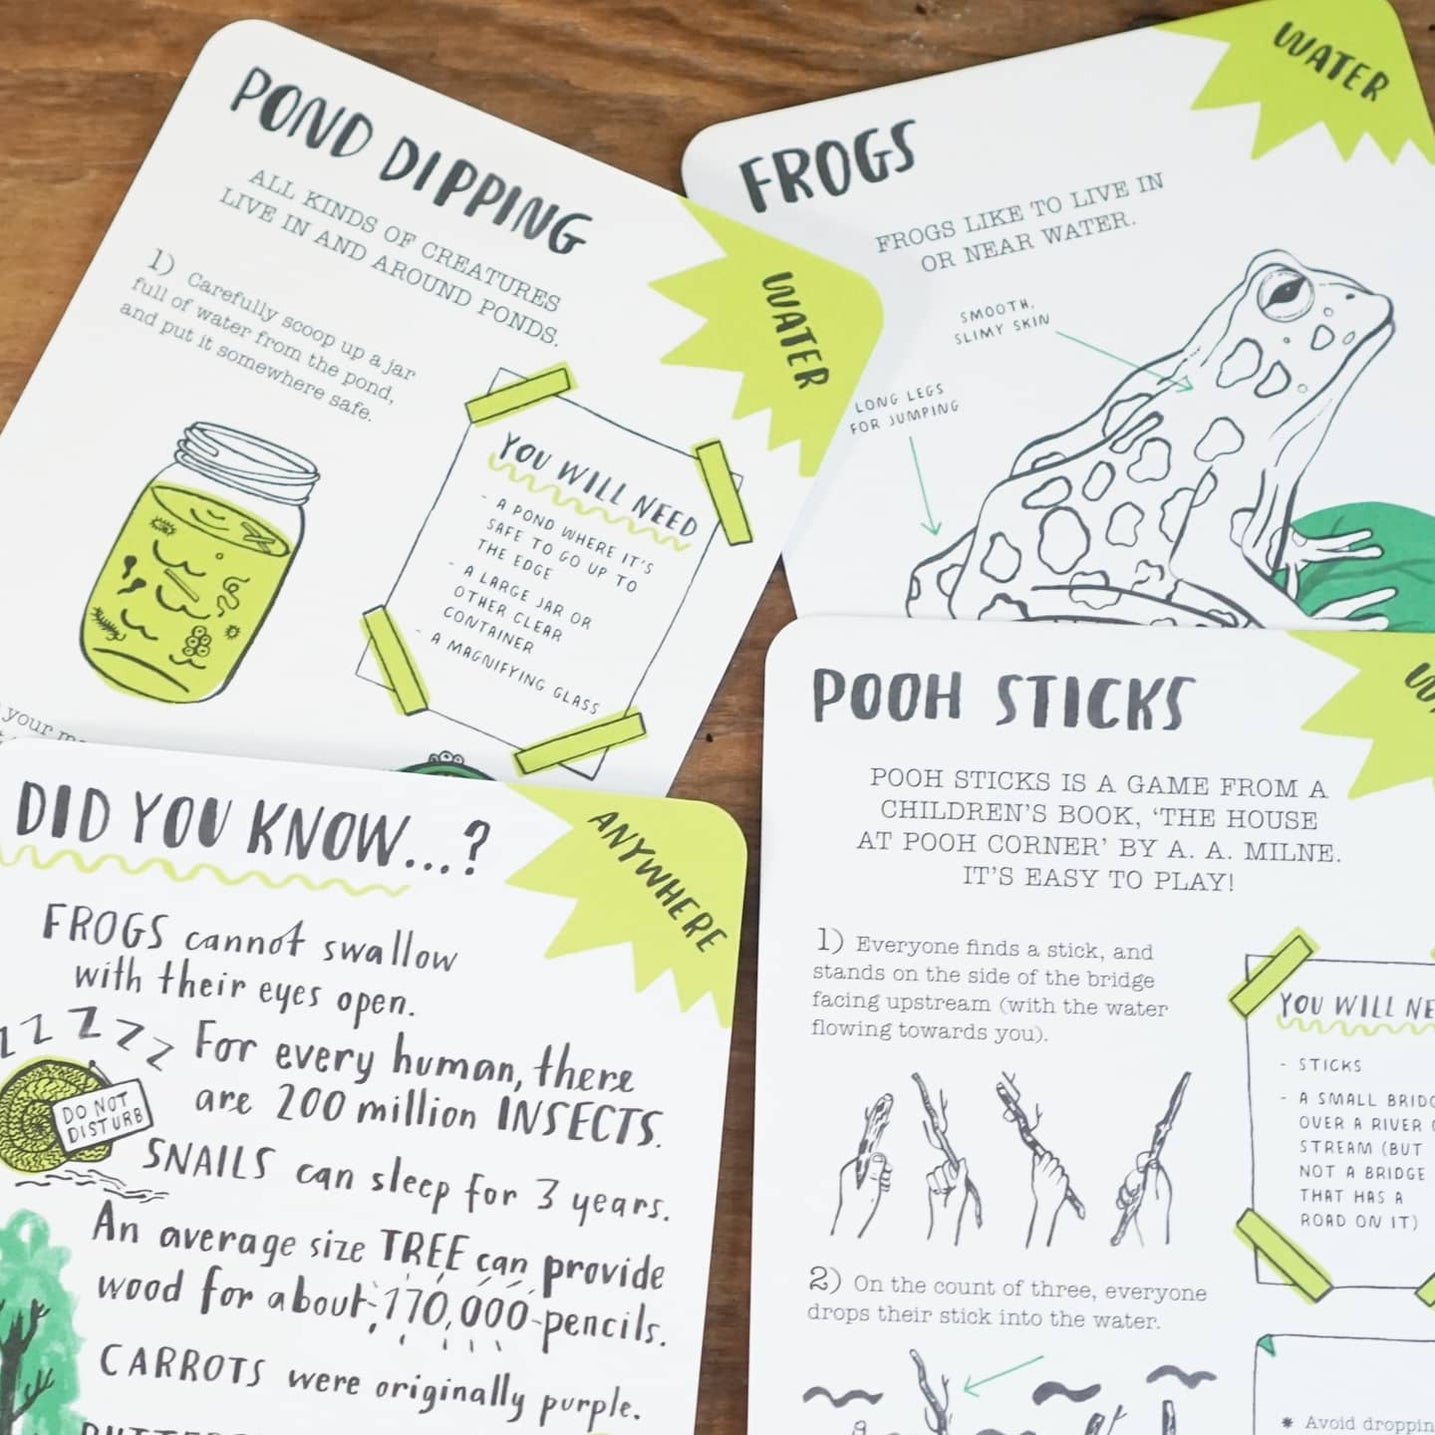 POND DIPPING
ALL KINDS OF CREATURES
LIVE IN AND AROUND PONDS.
1) Carefully scoop up a jar
full of water from the pond,
and put it somewhere safe.
YOU WILL NEED
- A POND WHERE IT'S
SAFE TO GO UP TO
THE EDGE
- A LARGE JAR OR
OTHER CLEAR
CONTAINER
- A MAGNIFYING GLASS
WATER
your
FROGS
FROGS LIKE TO LIVE IN
OR NEAR WATER.
SMOOTH,
SLIMY SKIN
LONG LEGS
FOR JUMPING
WATER
DID YOU KNOW...?
ANYWHERE
FROGS cannot swallow
with their eyes open.
ZZZZZ
For every human, there
are 200 million INSECTS.
DO NOT
DISTURB
SNAILS can sleep for 3 years.
An average size TREE can provide
wood for about 170,000 pencils.
CARROTS were originally purple.
POOH STICKS
POOH STICKS IS A GAME FROM A
CHILDREN'S BOOK, 'THE HOUSE
AT POOH CORNER' BY A. A. MILNE.
IT'S EASY TO PLAY!
1) Everyone finds a stick, and
stands on the side of the bridge
facing upstream (with the water
flowing towards you).
YOU WILL NE
- STICKS
- A SMALL BRIDG
OVER A RIVER
STREAM (BUT
NOT A BRIDGE
THAT HAS A
ROAD ON IT)
2) On the count of three, everyone
drops their stick into the water.
* Avoid droppin